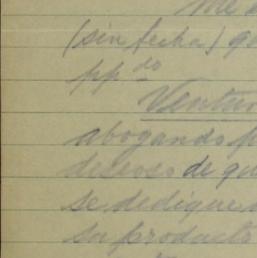 me
(sin fecha) qu
pp do
Ventur
abogando p
deseoso de qu
se dedique a
su producto